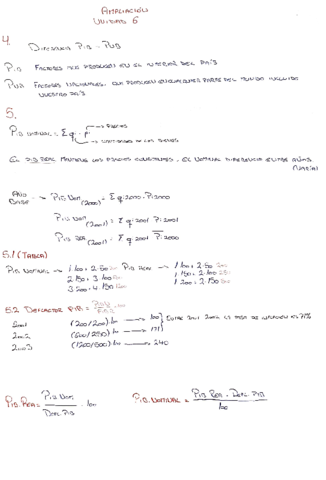 AMPLIACIÓN
UNIDAD 6
4.
DIFERENCIA PIB - PNB
PIB FACTORES QUE PRODUCEN EN EL INTERIOR DEL PAÍS
PNB FACTORES NACIONALES, QUE PRODUCEN EN CUALQUIER PARTE DEL MUNDO INCLUIDO
NUESTRO PAÍS
5.
PIB NOMINAL = Σ q · P → PRECIOS
→ CANTIDADES DE LOS BIENES
EL PIB REAL MANTIENE LOS PRECIOS CONSTANTES, EL NOMINAL
AÑO BASE → PIB NOM (2000) = Σ q·2000 · P·2000
PIB NOM (2001) = Σ q·2001 · P·2001
PIB REA (2001) = Σ q·2001 · P·2000
5.1 (TABLA)
PIB NOMINAL → 1·100 + 2·50 PIB REAL → 1·100 + 2·50
2·150 + 3·100
3·200 + 4·150 1·200 + 2·150
5.2 DEFLACTOR PIB = · 100
2001 (200/200) 100 → 100 ENTRE 2001 2002 LA TASA DE INFLACIÓN ES 71%
2002 (600/350) 100 → 171
2003 (1200/500) 100 → 240
PIB REAL = PIB NOM / DEFL. PIB · 100 PIB NOMINAL = PIB REA · DEFL. PIB / 100